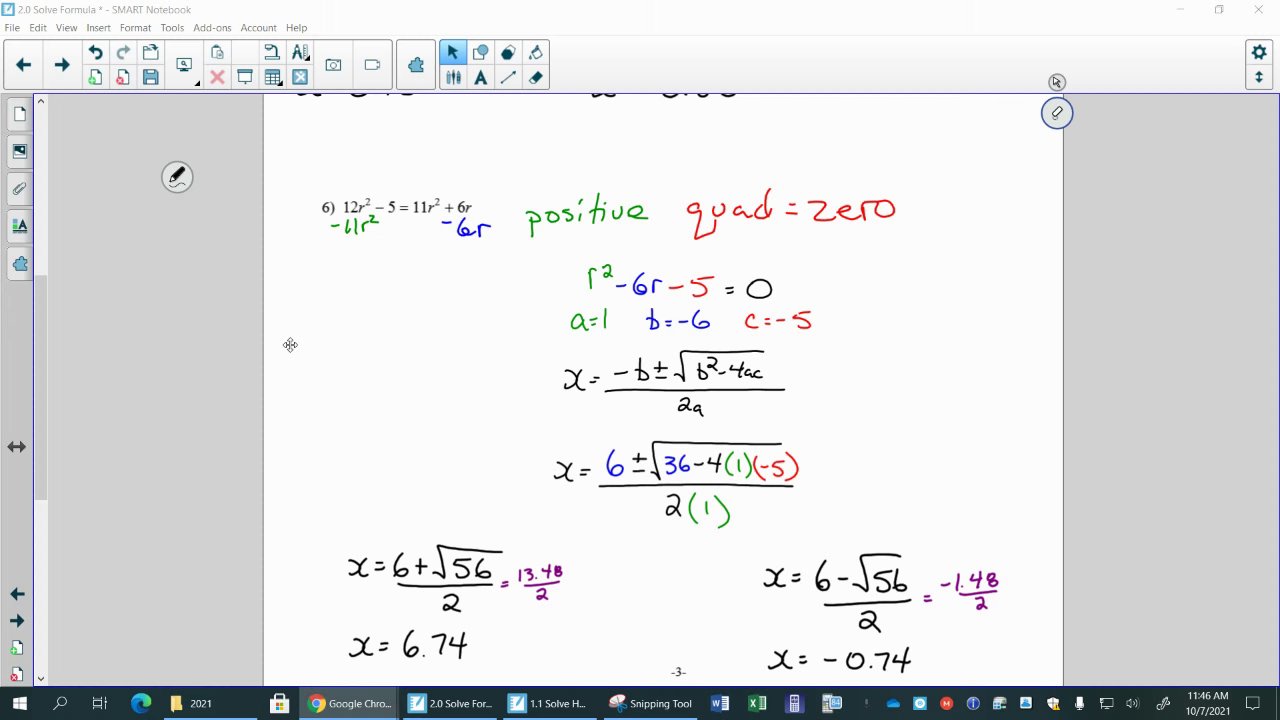 2.0 Solve Formula * - SMART Notebook
File Edit View Insert Format Tools Add-ons Account Help
6) 12r² − 5 = 11r² + 6r
-11r² -6r
positive quad = zero
r² -6r -5 = 0
a=1 b=-6 c=-5
x = -b ± √b²-4ac / 2a
x = 6 ± √36-4(1)(-5) / 2(1)
x = 6+√56 / 2 = 13.48 / 2
x = 6-√56 / 2 = -1.48 / 2
x = 6.74
x = -0.74
-3-
2021
Google Chro...
2.0 Solve For...
1.1 Solve H...
Snipping Tool
11:46 AM
10/7/2021